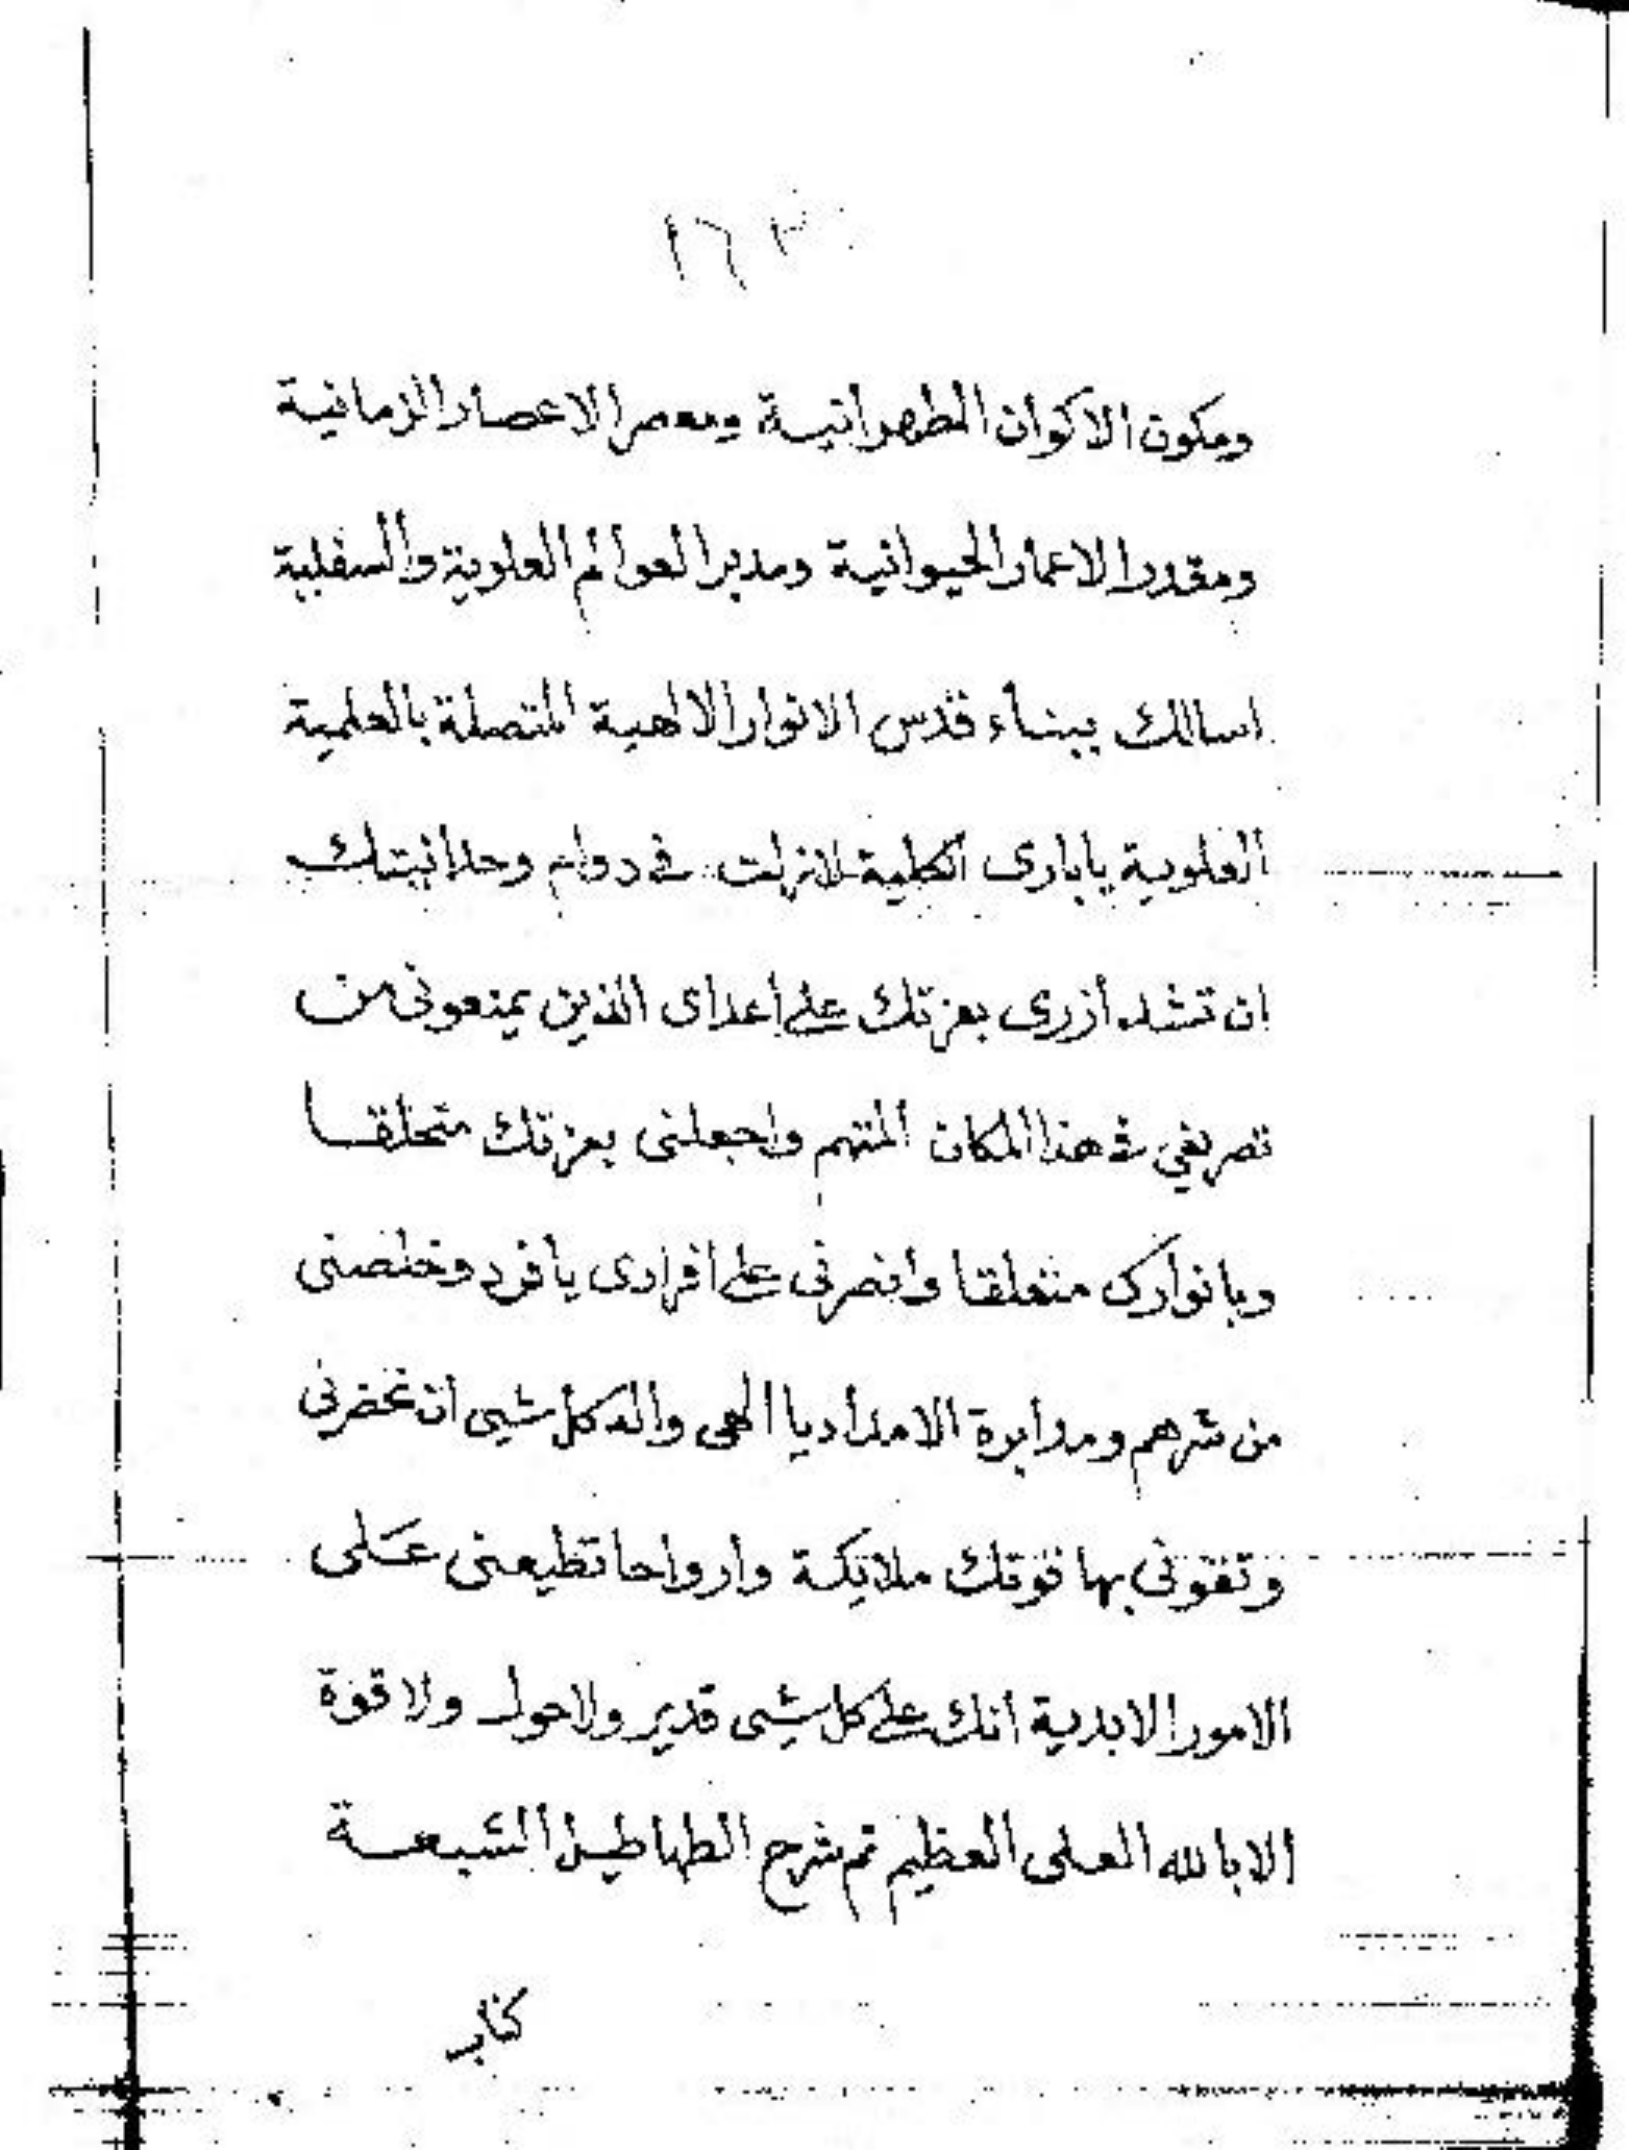 ١٦٣
ومكون الاكوان الطهرانية ومعصر الاعصار الزمانية
ومقدر الاعمار الحيوانية ومدبر العوالم العلوية والسفلية
اسالك ببناء قدس الانوار الالاهية المتصلة بالعلمية
العلوية يابارى الكلية لانزلت فى دوام وحدانيتك
ان تشد أزرى بعزتك على اعداى الذين يمنعونى من
تصريفي فى هذا المكان المتهم واجعلنى بعزتك متخلقا
وبانوارك متعلقا وانصرنى على افرادى يافرد وخلصنى
من شرهم ومدابرة الامداد يا الهى واله كل شيى ان تحضرنى
وتقونى بها قوتك ملائكة وارواحا تطيعنى على
الامور الابدية انك على كل شيى قدير ولاحول ولا قوة
الا بالله العلى العظيم تم شرح الطهاطيل الشيعة
كتاب